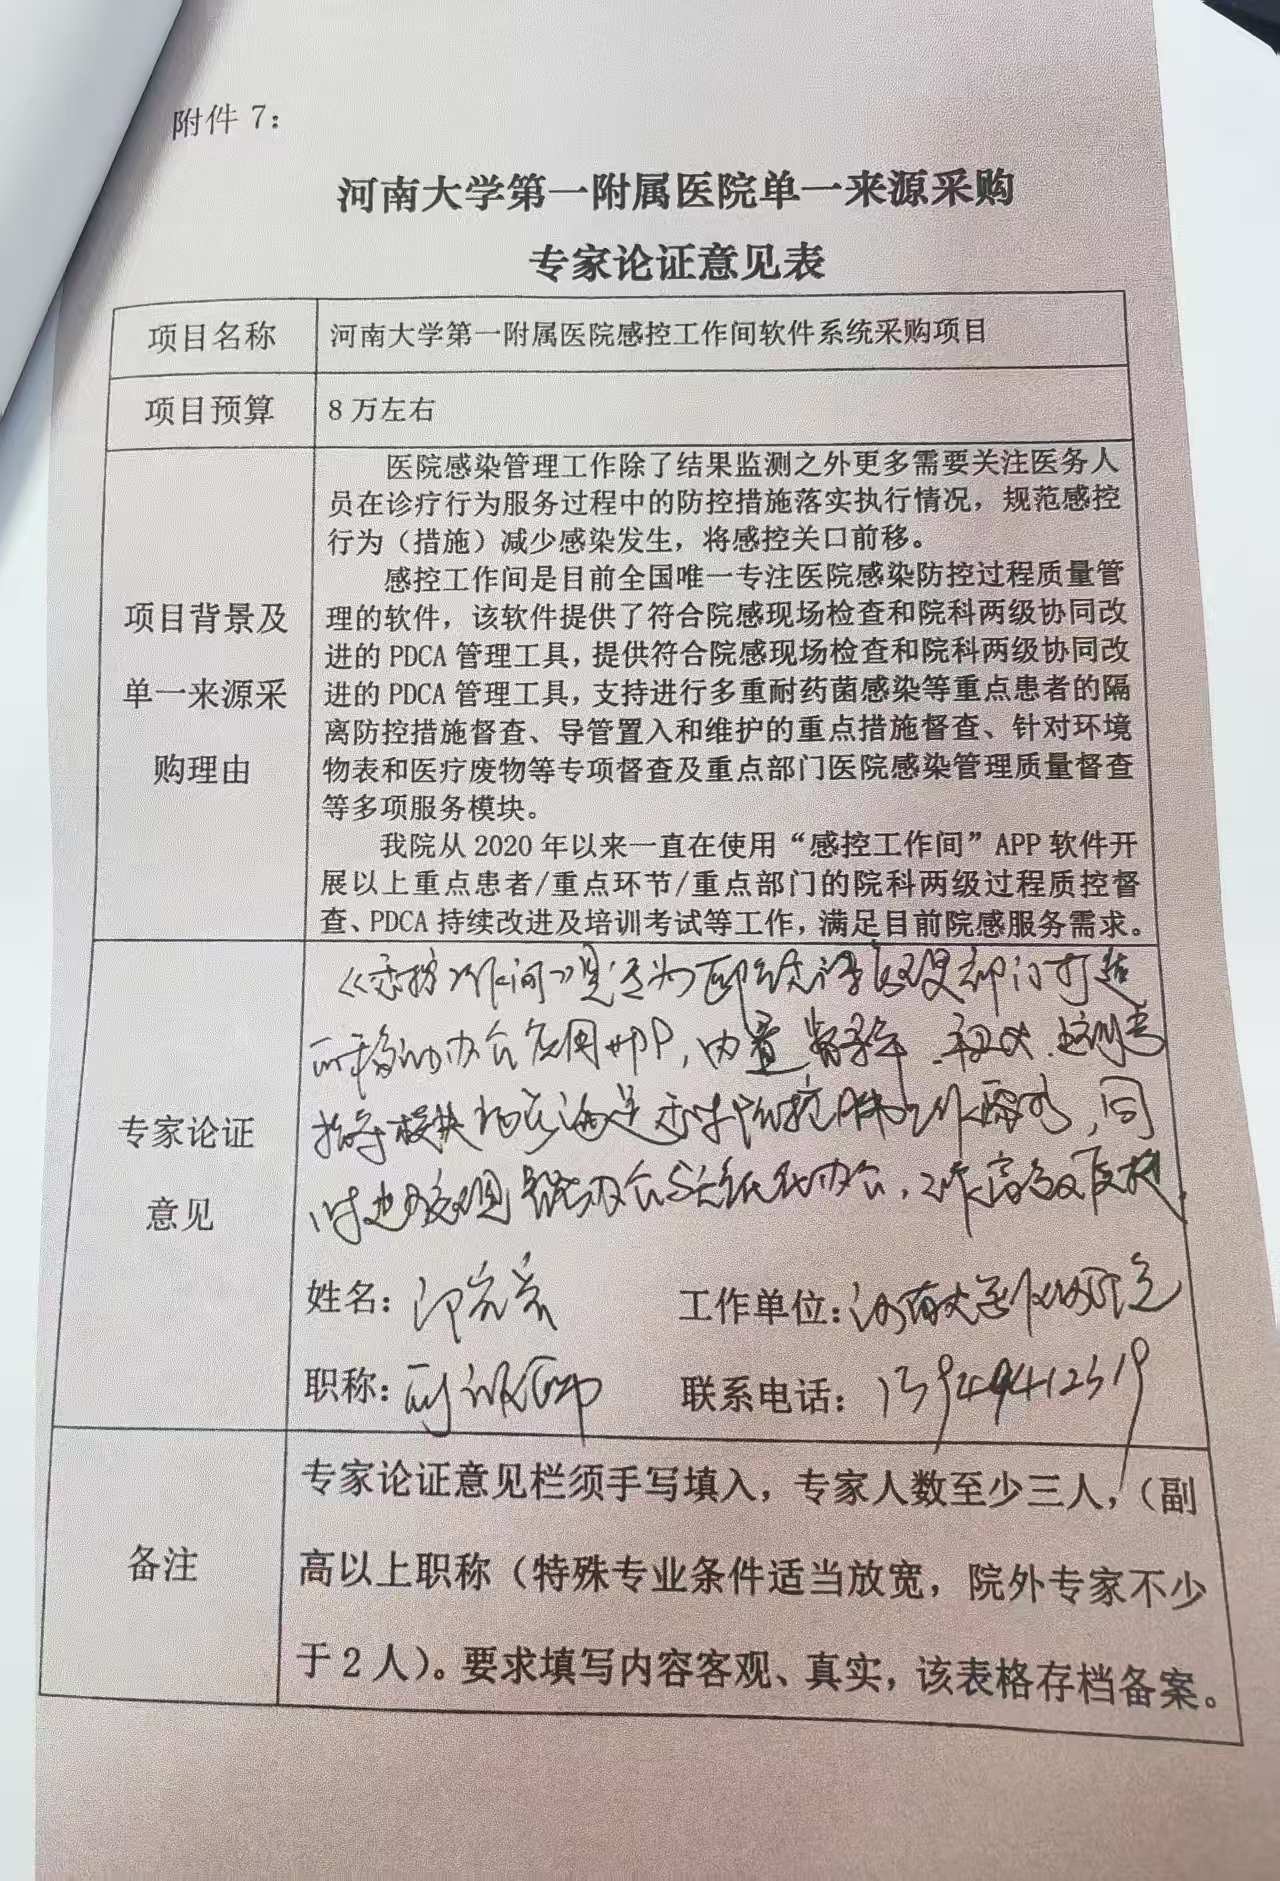 附件 7：
河南大学第一附属医院单一来源采购
专家论证意见表
项目名称
河南大学第一附属医院感控工作间软件系统采购项目
项目预算
8 万左右
项目背景及
单一来源采
购理由
医院感染管理工作除了结果监测之外更多需要关注医务人
员在诊疗行为服务过程中的防控措施落实执行情况，规范感控
行为（措施）减少感染发生，将感控关口前移。
感控工作间是目前全国唯一专注医院感染防控过程质量管
理的软件，该软件提供了符合院感现场检查和院科两级协同改
进的 PDCA 管理工具，提供符合院感现场检查和院科两级协同改
进的 PDCA 管理工具，支持进行多重耐药菌感染等重点患者的隔
离防控措施督查、导管置入和维护的重点措施督查、针对环境
物表和医疗废物等专项督查及重点部门医院感染管理质量督查
等多项服务模块。
我院从 2020 年以来一直在使用“感控工作间”APP 软件开
展以上重点患者/重点环节/重点部门的院科两级过程质控督
查、PDCA 持续改进及培训考试等工作，满足目前院感服务需求。
专家论证
意见
《感控工作间》是专为医院感染管理部门打造
的移动办公应用APP，内置
模块 满足 防控 工作需求，同
时也 办公与无纸化办公，工作高效
姓名：
工作单位：河南大学
职称：副
联系电话：13949412319
备注
专家论证意见栏须手写填入，专家人数至少三人，（副
高以上职称（特殊专业条件适当放宽，院外专家不少
于 2 人）。要求填写内容客观、真实，该表格存档备案。